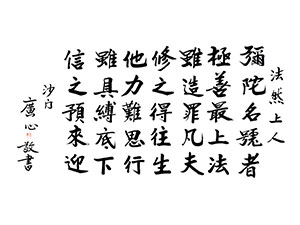 法然上人
彌陀名號者
極善最上法
雖造罪凡夫
修之得往生
他力難思行
雖具縛底下
信之預來迎
沙门
廣心敬書